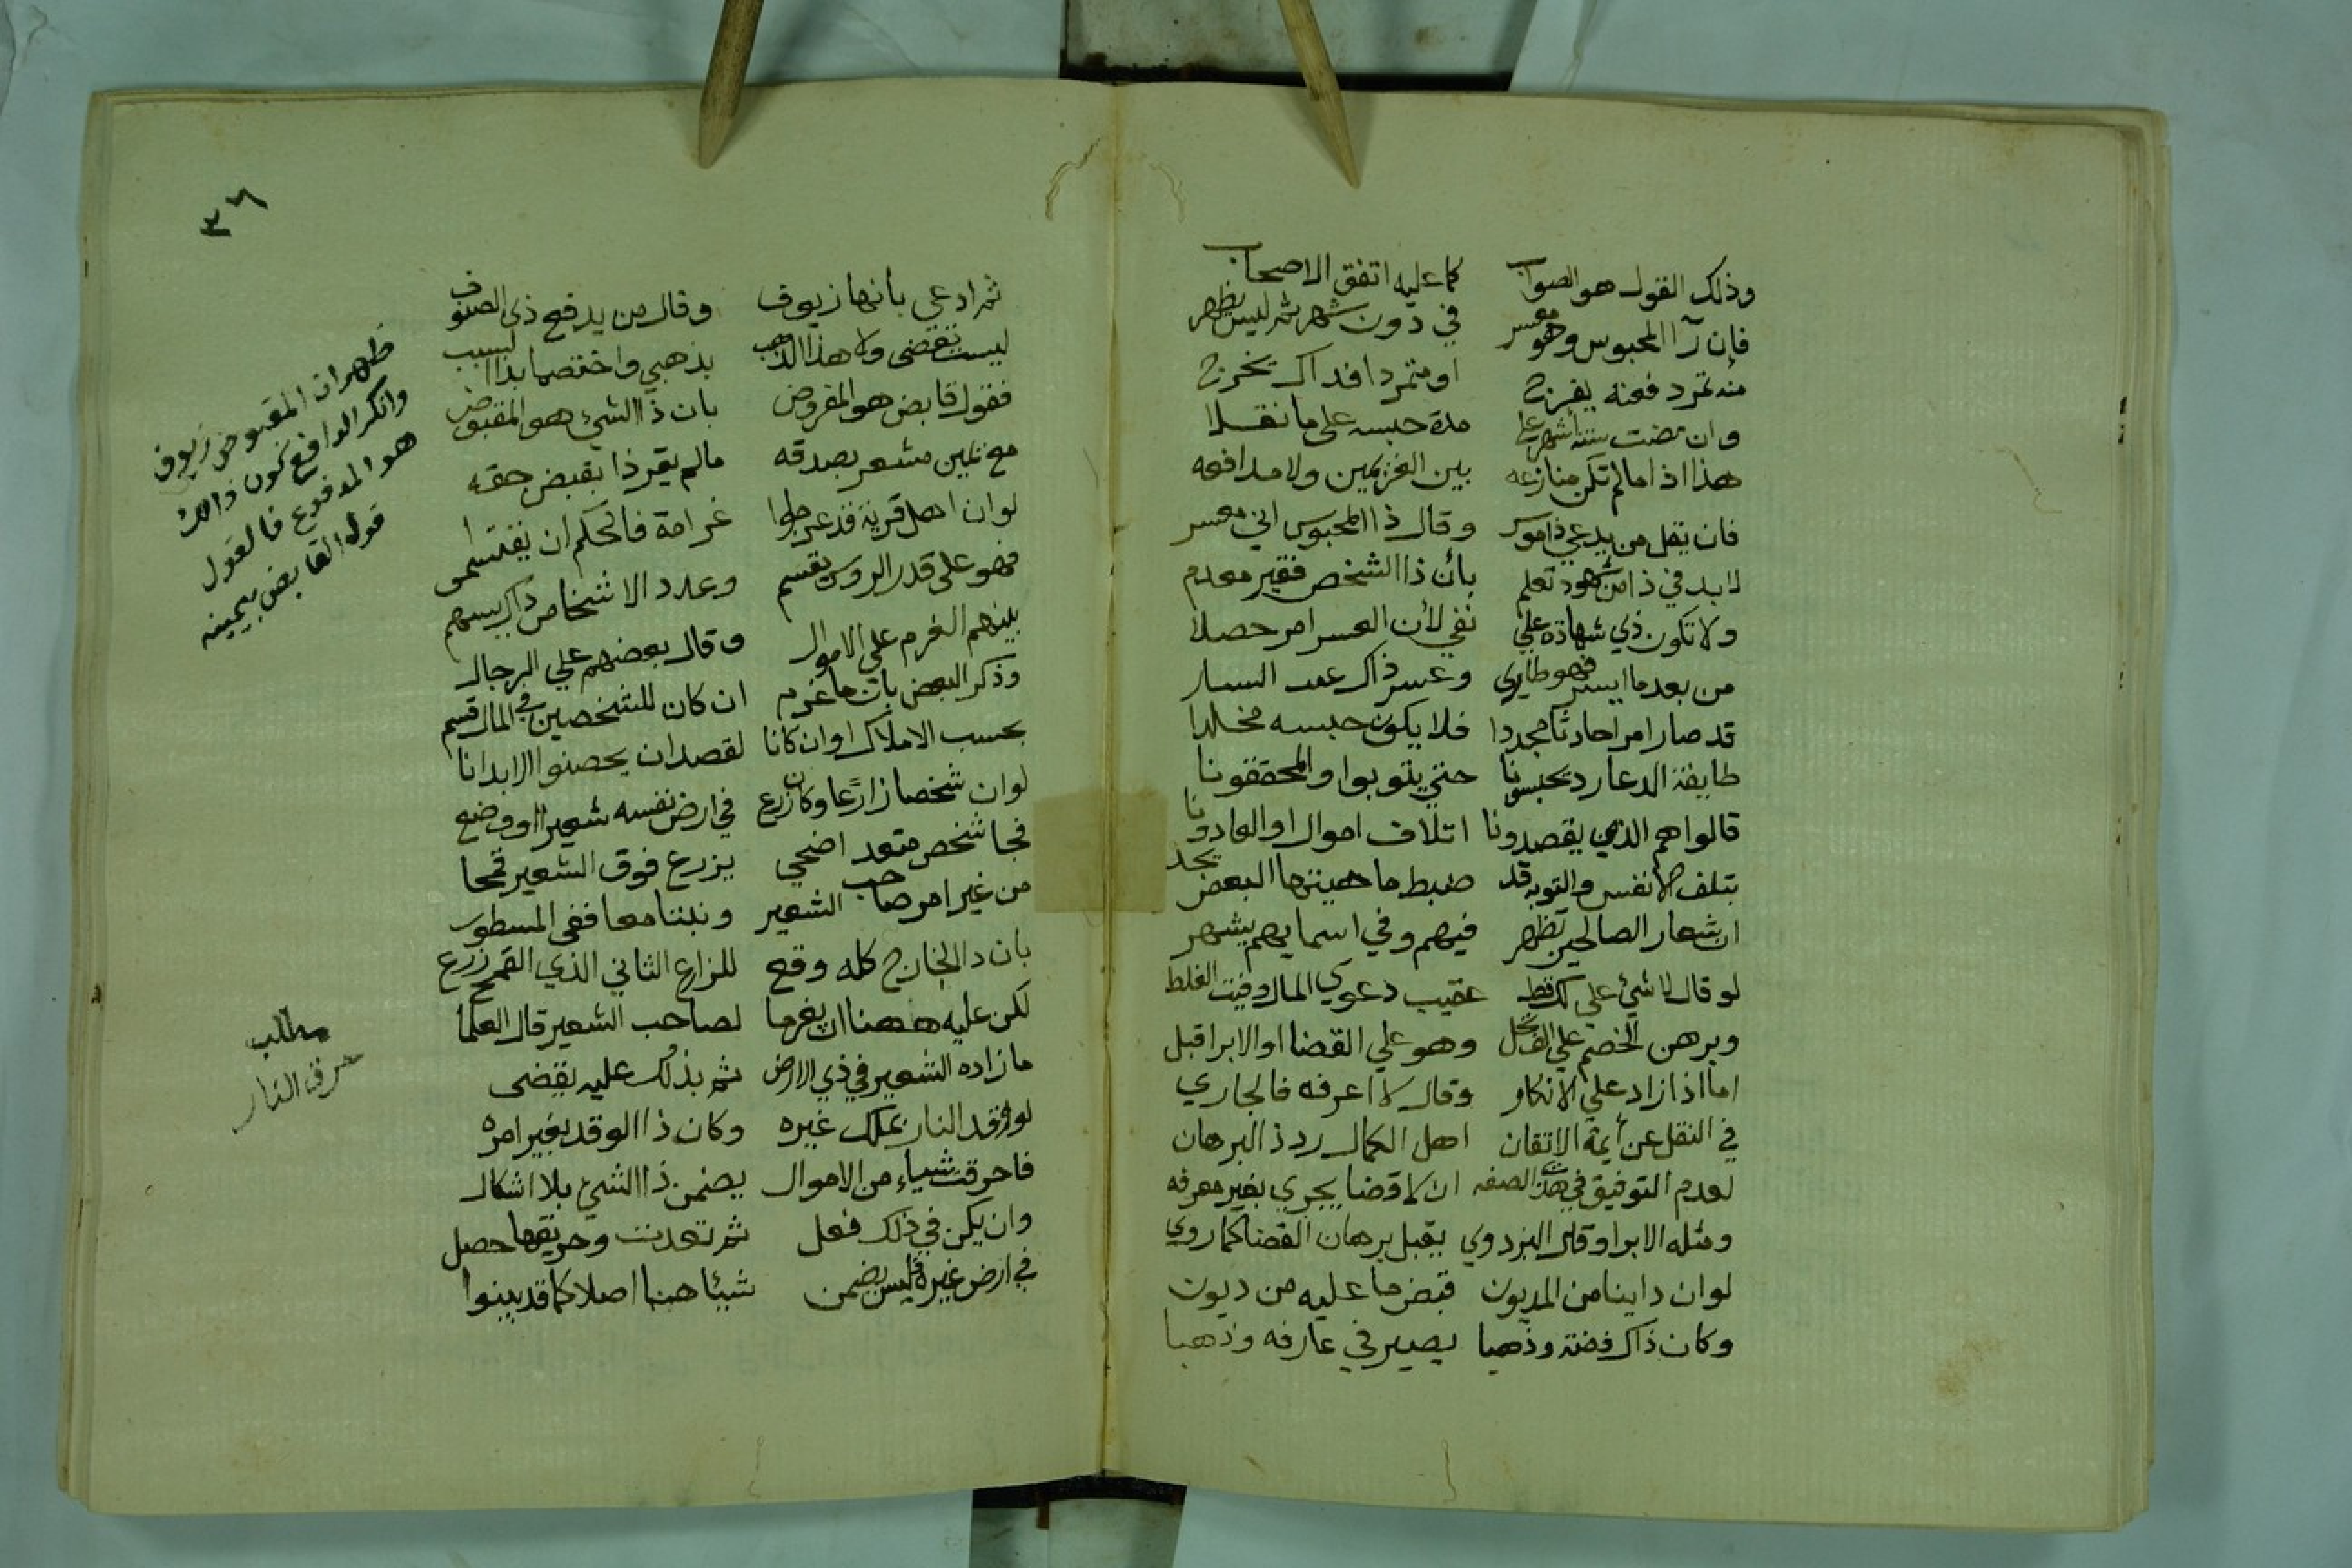 وذلك القول هو الصواب كما عليه اتفق الاصحاب
فإن رآ المحبوس وهو معسر في دون شهر ثم ليس يظهر
منه تمرد فعنه يفرج او متمردا فذاك يخرج
وان مضت ستة اشهر علي مدة حبسه على ما نقلا
هذا اذا ما لم تكن منازعه بين الغريمين ولا مدافعه
فان يقل من يدعي ذا موسر وقال ذا المحبوس اني معسر
لابد في ذا من شهود تعلم بأن ذا الشخص فقير معدم
ولا تكون ذي شهادة علي نفي لأن العسر امر حصلا
من بعد ما ايسر فهو طاري وعسر ذاك عند اليسار
قد صار امرا حادثا مجددا فلا يكون حبسه مخلدا
طايفة الدعار د يحبسونا حتي يتوبوا والمحققونا
قالوا هم الذي يقصدونا اتلاف اموال او العادونا
بتلف الانفس والتوبه قد ضبط ما هيتها البعض بحد
ان شعار الصالحين تظهر فيهم وفي اسمايهم يشهر
لو قال لا شئ علي لك قط عقيب دعوي المال وفيت الغلط
وبرهن الخصم علي الف بحل وهو علي القضا او الابرا قبل
اما اذا زاد علي الانكار وقال لا اعرفه فالجاري
في النقل عن أيمة الاتقان اهل الكمال رد ذ البرهان
لعدم التوفيق في هذه الصفه ان لا قضا يجري بغير معرفه
ومثله الابرا وقال البزدوي يقبل برهان القضا كما روي
لو ان داينا من المديون قبض ما عليه من ديون
وكان ذاك فضة وذهبا يصير في عارفه وذهبا
٣٦
ثم ادعي بانها زيوف وقال من يدفع ذي الصنوف
ليست بقضى ولا هذا الذهب بذهبي واختصما بذا السبب
فقول قابض هو المفروض بان ذا الشئ هو المقبوض
مع يمين مشعر بصدقه مالم يقر ذا بقبض حقه
لو ان اهل قرية قد غرموا غرامة فالحكم ان يقتسموا
فهو على قدر الروس تقسم وعدد الاشخاص ذاك يسهم
بينهم الغرم على الاموال وقال بعضهم علي الرجال
وذكر البعض بان ما غرم ان كان للشخصين في المال قسم
بحسب الاملاك او ان كانا لقصد ان يحصنوا الابدانا
لو ان شخصا زارعا وكان زرع في ارض نفسه شعيرا او وضع
فجا شخص متعد اضحي يزرع فوق الشعير قمحا
من غير امر صاحب الشعير ونبتا معا ففي المسطور
بان دا الخارج كله وقع للزارع الثاني الذي القمح زرع
لكن عليه ههنا ان يغرما لصاحب الشعير قال العلما
ما زاده الشعير في ذي الارض ثم بذلك عليه يقضى
لو اوقد النار بملك غيره وكان ذا الوقد بغير امره
فاحرقت شياء من الاموال يضمن ذا الشئ بلا اشكال
وان يكن في ذلك فعل ثم تعدت وحريقها حصل
في ارض غيره فليس يضمن شيئا هنا اصلا كما قد بينوا
ظهر ان المقبوض زيوف
وانكر الدافع كون ذالك
هو المدفوع فالقول
قول القابض بيمينه
مطلب
حرق النار